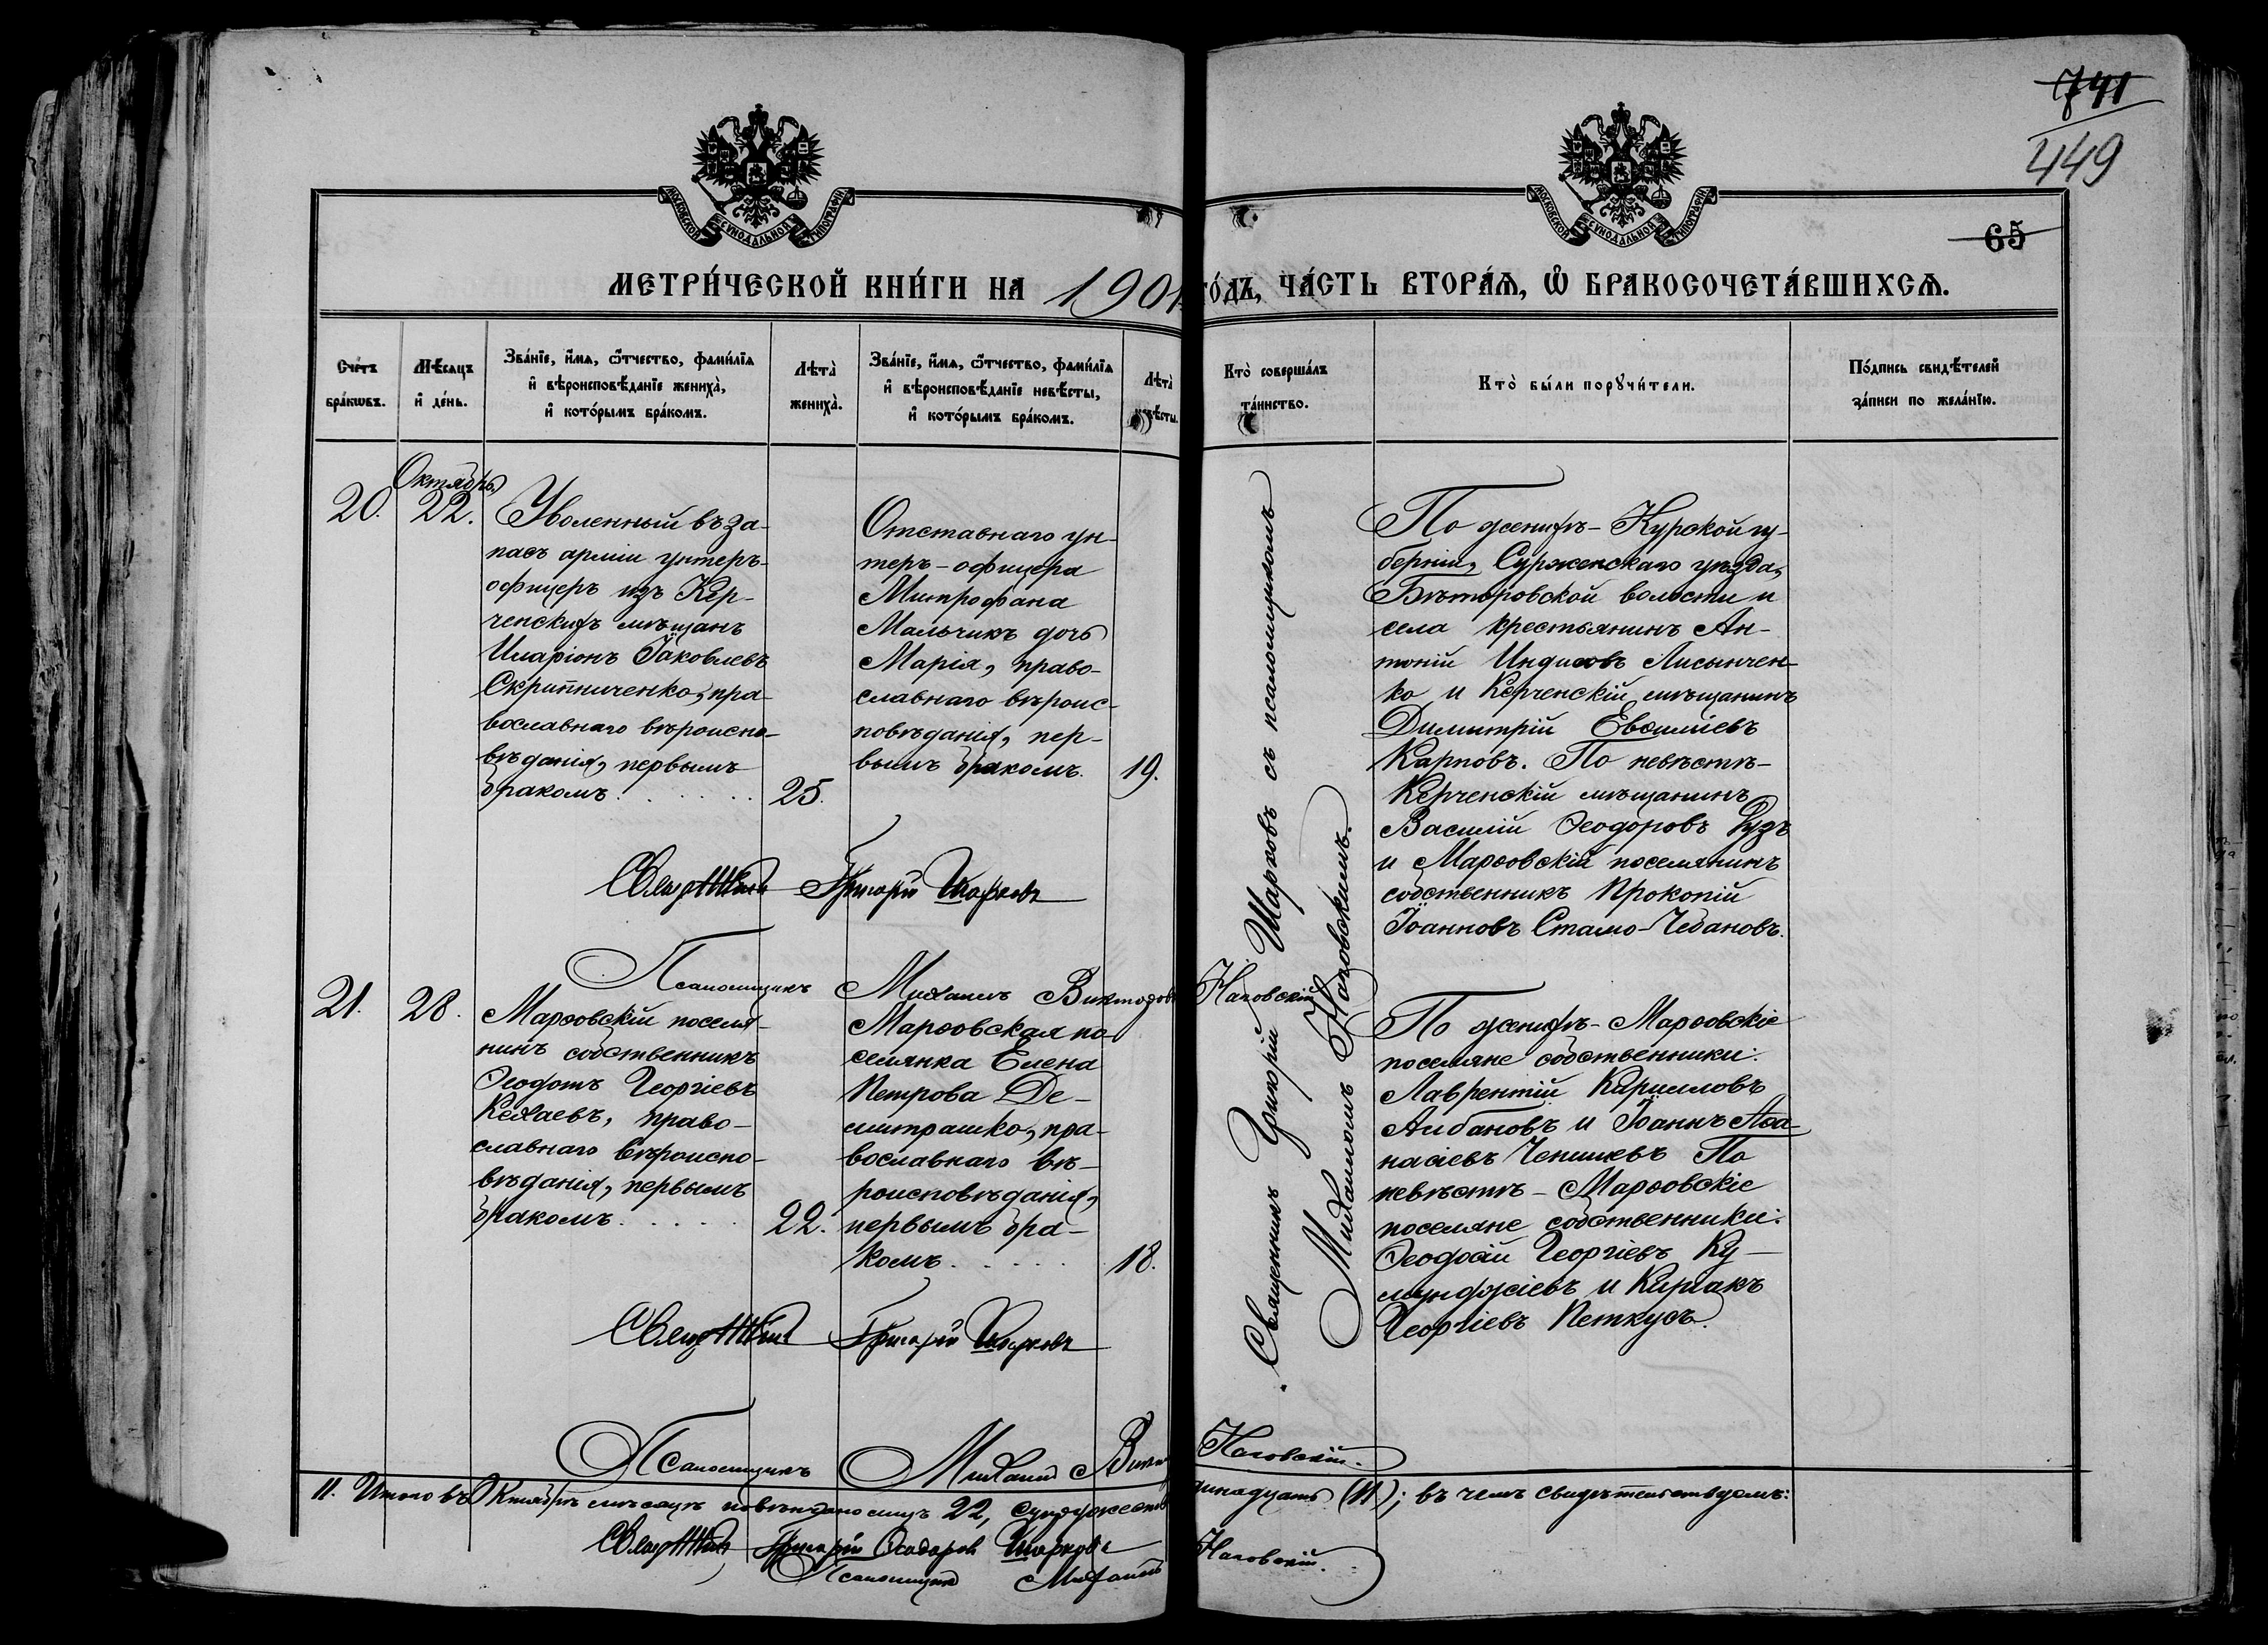 741
449
65
МОСКОВСКОЙ СѴНОДАЛЬНОЙ ТИПОГРАФІИ
МОСКОВСКОЙ СѴНОДАЛЬНОЙ ТИПОГРАФІИ
МЕТРИ́ЧЕСКОЙ КНИ́ГИ НА 1901 ГО́ДЪ, ЧА́СТЬ ВТОРА́Ѧ, Ѽ БРАКОСОЧЕТА́ВШИХСѦ.
Сче́тъ
бра́кѡвъ.
Мѣ́сѧцъ
и҆ де́нь.
Зва́нїе, и҆́мѧ, ѻ҆́тчество, фами́лїѧ
и҆ вѣроисповѣ́данїе жениха̀,
и҆ кото́рымъ бра́комъ.
Лѣта̀
жениха̀.
Зва́нїе, и҆́мѧ, ѻ҆́тчество, фами́лїѧ
и҆ вѣроисповѣ́данїе невѣ́сты,
и҆ кото́рымъ бра́комъ.
Лѣта̀
невѣ́сты.
Кто̀ соверша́лъ
та́инство.
Кто̀ бы́ли порꙋчи́тели.
По́дпись свидѣ́телей
за́писи по жела́нїю.
20.
Октябрь
22.
Уволенный въ за-
пасъ арміи унтеръ-
офицеръ изъ Кер-
ченскихъ мѣщанъ
Иларіонъ Іаковлевъ
Скрипниченко, пра-
вославнаго вѣроиспо-
вѣданія, первымъ
бракомъ.
25.
Отставнаго ун-
теръ-офицера
Митрофана
Мальчикъ дочь
Марія, право-
славнаго вѣроис-
повѣданія, пер-
вымъ бракомъ.
19.
Священникъ Григорій Шарковъ съ псаломщикомъ
Михаиломъ Наговскимъ.
По женихѣ - Курской гу-
берніи, Суржанскаго уѣзда,
волости и
села крестьянинъ Ан-
тоній Лисынчен-
ко и Керченскій мѣщанинъ
Димитрій
Карповъ. По невѣстѣ-
Керченскій мѣщанинъ
Василій Ѳеодоровъ
и Марѳовскій поселянинъ
собственникъ Прокопій
Іоанновъ Стамо-Чебановъ.
Священникъ Григорій Шарковъ
Псаломщикъ Михаилъ Викторовъ Наговскій
21.
28.
Марѳовскій поселя-
нинъ собственникъ
Ѳеодотъ Георгіевъ
Кехаевъ, право-
славнаго вѣроиспо-
вѣданія, первымъ
бракомъ.
22.
Марѳовская по-
селянка Елена
Петрова Де-
митрашко, пра-
вославнаго вѣ-
роисповѣданія,
первымъ бра-
комъ.
18.
По женихѣ - Марѳовскіе
поселяне собственники:
Лаврентій Кирилловъ
Албановъ и Іоаннъ Аѳа-
насіевъ По
невѣстѣ - Марѳовскіе
поселяне собственники:
Ѳеодосій Георгіевъ Ку-
мунджіевъ и Киріакъ
Георгіевъ Петкусъ.
Священникъ Григорій Шарковъ
Псаломщикъ Михаилъ Наговскій.
11. Итого въ Октябрѣ мѣсяцѣ повѣнчано лицъ 22, супружествъ
динадцать (11); въ чемъ свидѣтельствуемъ:
Священникъ Григорій Ѳеодоровъ Шарковъ
Псаломщикъ Михаилъ Наговскій.